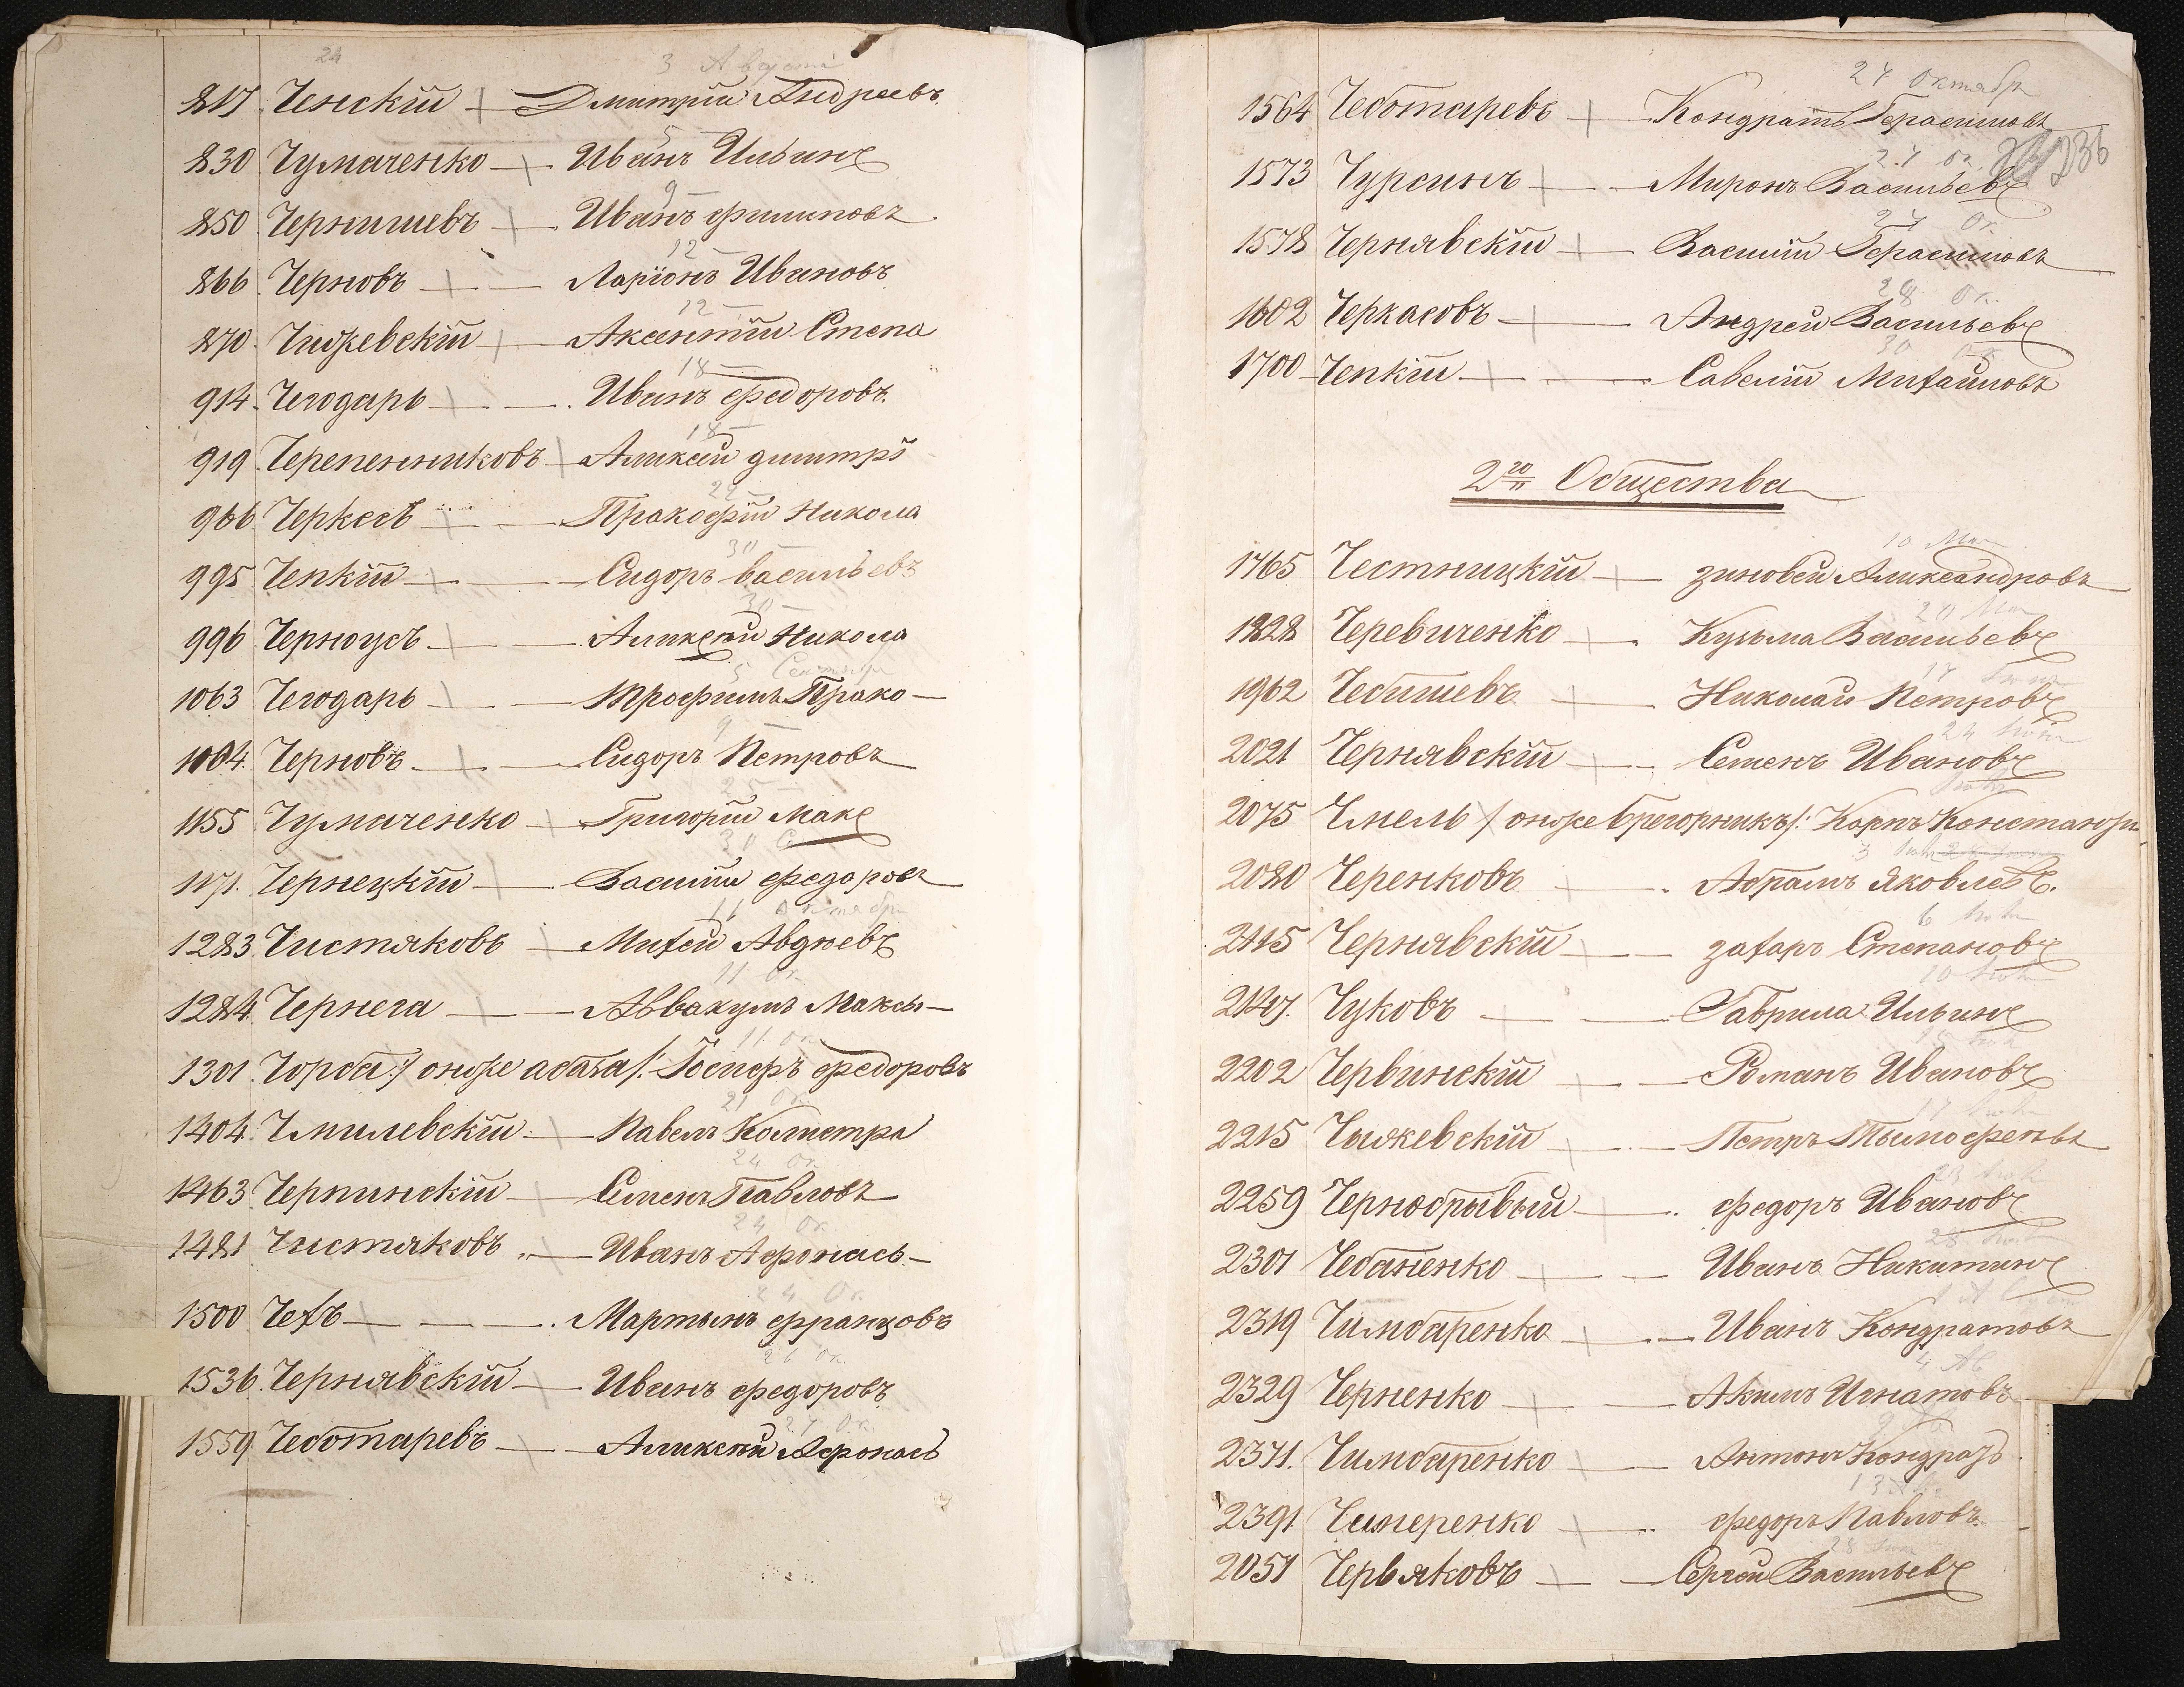 24
3 Августа
817. Ченскій Дмитрій Андреевъ
5
830 Чумаченко Иванъ Ильинъ
9
850 Чернишевъ Иванъ филиповъ
12
866 Черновъ Ларіонъ Ивановъ
12
870 Чижевскій Аксентій Степа
18
914 Чегодарь Иванъ федоровъ
18
919 Черепенниковъ Аликсей дмитрі
22
966 Черкесъ Пракофій Никола
30
995 Чепкій Сидоръ васильевъ
30
996 Черноусъ Аликсѣй Никола
5 Сентября
1063 Чегодарь Трофимъ Прако
9
1084 Черновъ Сидоръ Петровъ
25
1155 Чумаченко Григорій Макс
30 С
1171. Чернецкій Василій федоровъ
11 Октября
1283 Чистяковъ Михей Авдѣевъ
11 Ок
1284 Чернега Аввакумъ Максы
11 Ок
1301 Чорба /: онже абаза /: Іосифъ федоровъ
21 Ок
1404 Чмилевскій Павелъ Колистра
24 Ок
1463 Черпинскій Семенъ Павловъ
24 Ок
1481 Чистяковъ Иванъ Афонась
24 Ок
1500 Чехъ Мартынъ францовъ
26 Ок
1536 Чернявскій Иванъ федоровъ
27 Ок
1559 Чеботаревъ Аликсѣй Афонась
27 Октябр
1564 Чеботаревъ Кондратъ Герасимовъ
27 Ок 236
1573 Чурсинъ Миронъ Васильевъ
27 Ок
1578 Чернявскій Василій Герасимовъ
28 Ок
1602 Черкасовъ Андрей Васильевъ
30 Ок
1700 Чепкій Савелій Михайловъ
2го Общества
10 Мая
1765 Честницкій зиновей Аликсандровъ
20
1828 Черевиченко Кузьма Васильевъ
17
1962 Чебишевъ Николай Петровъ
24
2021 Чернявскій Семенъ Ивановъ
2075 Чмель /: онже брегорникъ /: Карпъ Константи
3
2080 Черенковъ Абрамъ Яковлевъ
6
2115 Чернявскій захаръ Степановъ
10
2147. Чуковъ Гаврила Ильинъ
2202 Червинскій Романъ Ивановъ
17
2215 Чижевскій Петръ Тимофеевъ
23
2259 Чернобривый федоръ Ивановъ
28
2301 Чебаненко Иванъ Никитинъ
2319 Чимбаренко Иванъ Кондратовъ
4 Ав
2329 Черненко Акимъ Игнатовъ
2371. Чимбаренко Антонъ Кондрат
13
2391 Чиперенко федоръ Павловъ
28
2051 Червяковъ Сергей Васильевъ